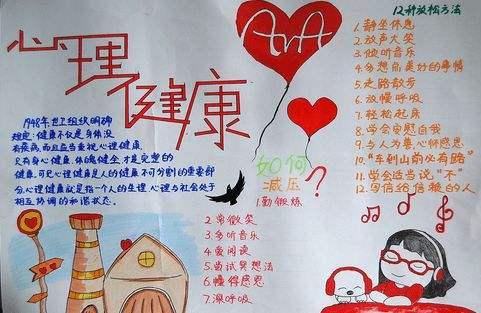 心理健康
AvA
1948年世卫组织明确
规定：健康不仅是身体没
有疾病，而且应当重视心理健康
只有身心健康、体魄健全才是完整的
健康。可见心理健康是人的健康不可分割的重要部
分。心理健康就是指一个人的生理、心理与社会处于
相互协调的和谐状态。
如何
减压？
1.勤锻炼
2.常微笑
3.多听音乐
4.爱阅读
5.尝试冥想法
6.懂得感恩
7.深呼吸
12种放松方法
1.静坐休息
2.放声大笑
3.倾听音乐
4.多想前美好的事情
5.走路散步
6.放慢呼吸
7.轻松起床
8.学会安慰自我
9.与人为善心怀感恩
10.“车到山前必有路”
11.学会适当说“不”
12.写信给信赖的人